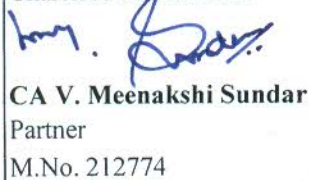 CA V. Meenakshi Sundar
Partner
M.No. 212774